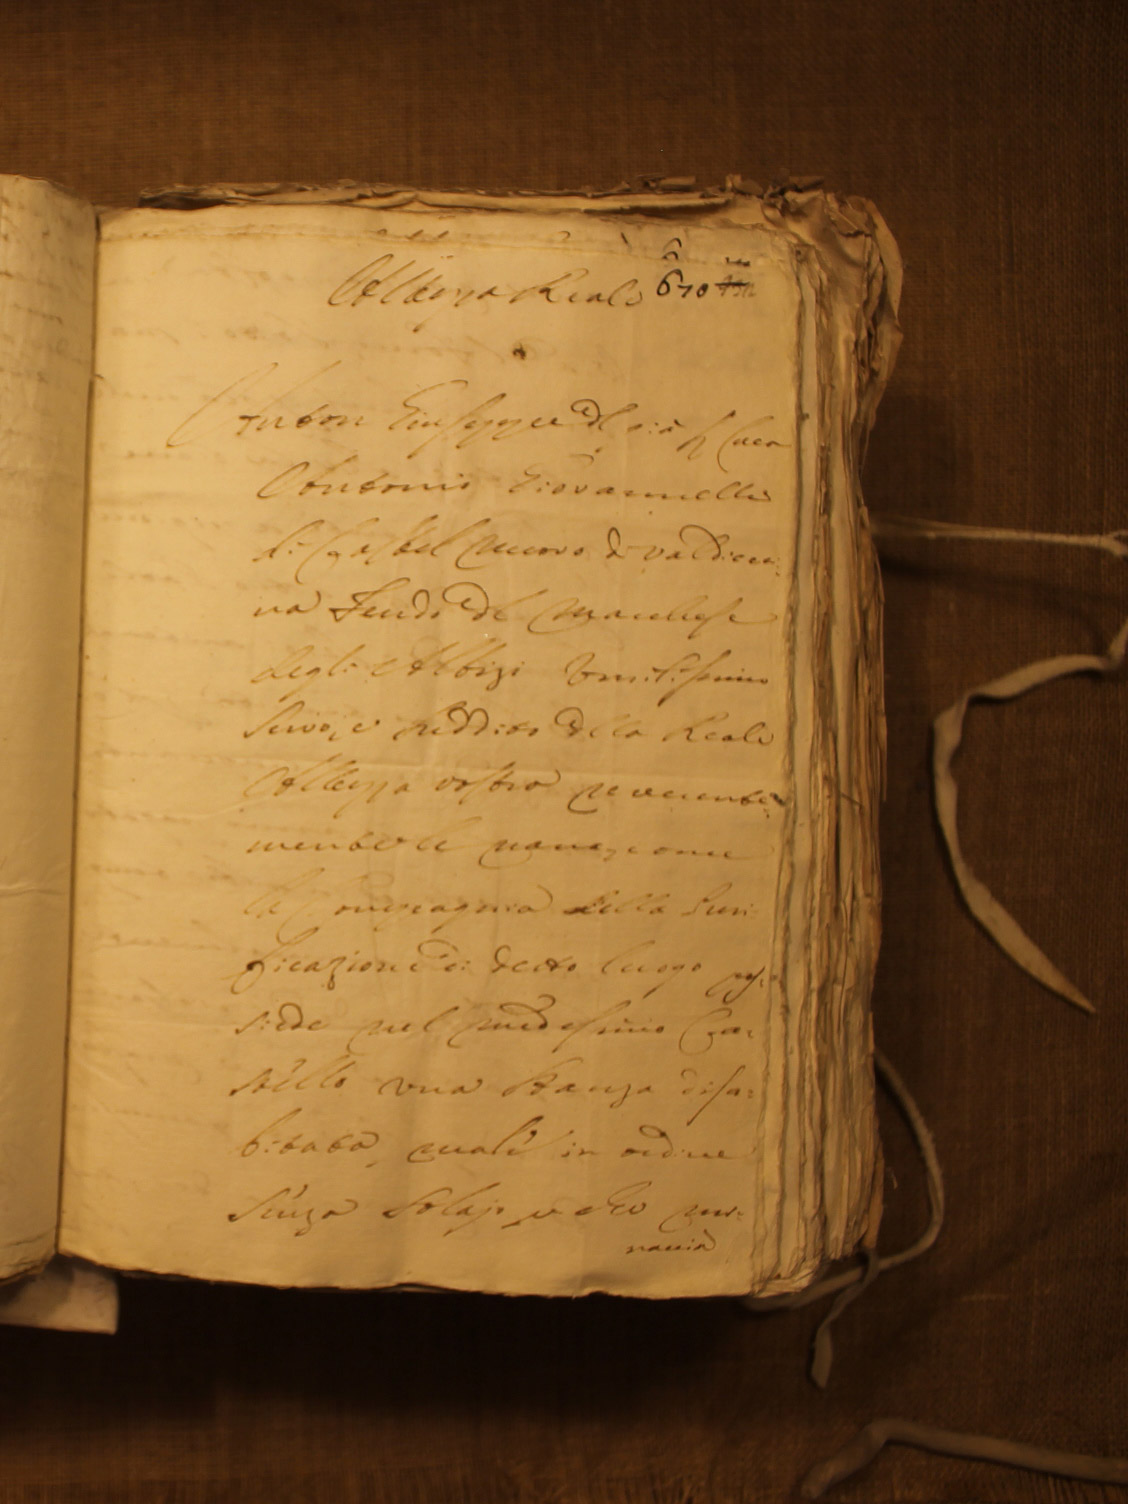 Altezza Reale 610
Anton Giuseppe del già Luca
Antonio Giovannelli
di Castel Nuovo di Valdicec:
na Feudo del Marchese
degli Albizi Umilissimo
Servo, e suddito della Reale
Altezza vostra reverente
mente le narra, come
la Compagnia della Puri
ficazione di detto luogo pos:
siede nel medesimo Ca:
stello una stanza disa:
bitata, male in ordine
senza solajo, e che mi:
naccia